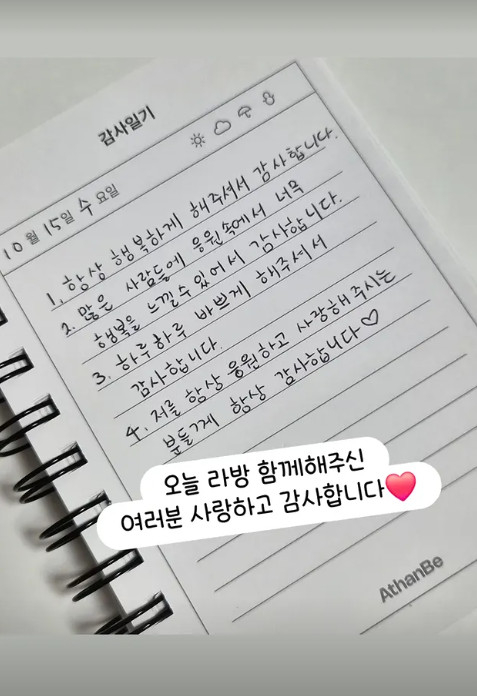 감사일기
10월 15일 수요일
1. 항상 행복하게 해주셔서 감사합니다.
2. 많은 사람들에 응원속에서 너무
행복을 느낄수 있어서 감사합니다.
3. 하루하루 바쁘게 해주셔서
감사합니다.
4. 저를 항상 응원하고 사랑해 주시는
분들께 항상 감사합니다♡
오늘 라방 함께해주신
여러분 사랑하고 감사합니다❤️
AthanBe